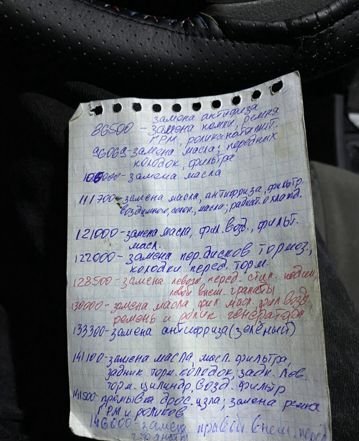 замена антифиза
86500 - замена помпы, ремня
ГРМ, ролик натяжит.
96069 - замена масла, передних
колодок, фильтра
106000 - замена масла
111700 - замена масла, антифриза, фильтр.
воздушное, масла,
121000 - замена масла, фил. возд., фильт.
масл.
122000 - замена пер. дисков тормоз,
колодки перед. торм.
128500 - замена перед.
внеш. гранаты
130000 - замена масла фил мас. фил возд.
ремень и ролик генератора
133300 - замена антифриза (зелёный)
141100 - замена масла, масл. фильтра,
задних торм. колодок, задн. лев.
торм. цилиндр, возд. фильтр
141500 промывка дрос. узла, замена ремня
ГРМ и роликов
146000 - замен правой внеш.